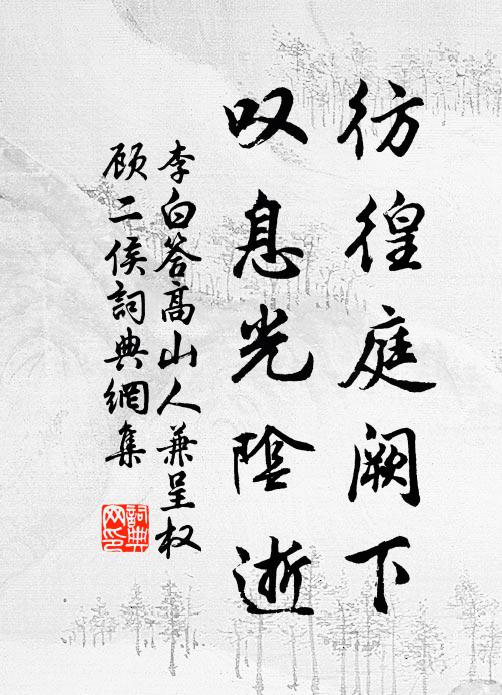 彷徨庭阙下
叹息光陰逝
李白答高山人兼呈权
顾二侯詞典網集
詞典
网印